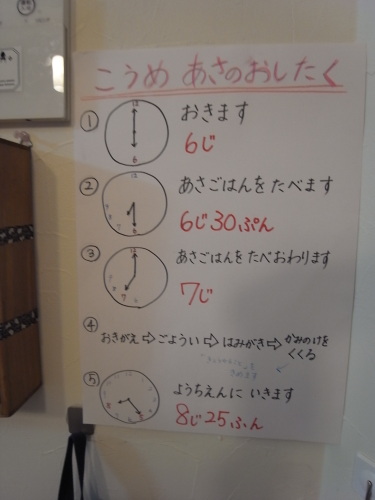 こうめ あさのおしたく
① おきます
6じ
② あさごはんを たべます
6じ30ぷん
③ あさごはんを たべおわります
7じ
④ おきがえ⇨ごようい⇨はみがき⇨かみのけを
くくる
きめます
⑤ ようちえんに いきます
8じ25ふん